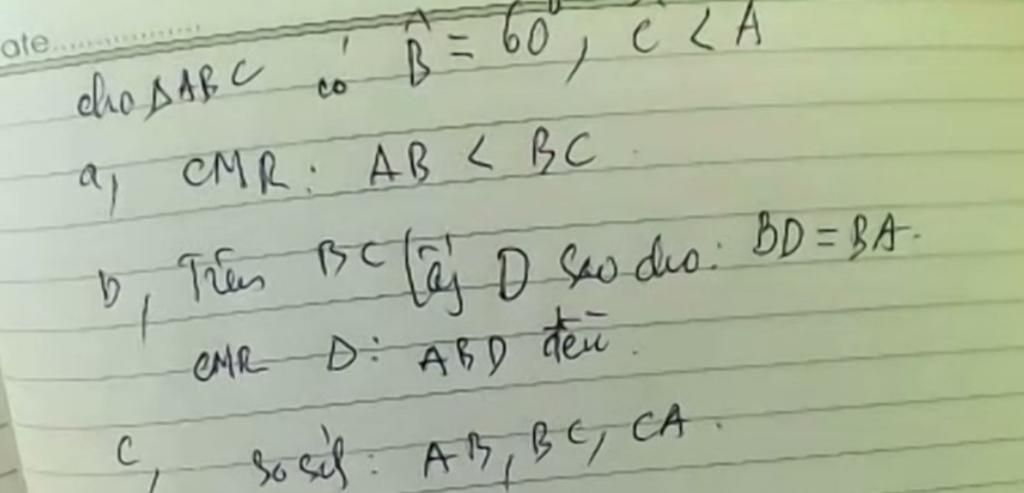 ate
cho ΔABC có B̂ = 60°, C < A
a, CMR: AB < BC.
b, Trên BC lấy D sao cho: BD = BA.
CMR D: ABD đều.
C, So sánh: AB, BC, CA.